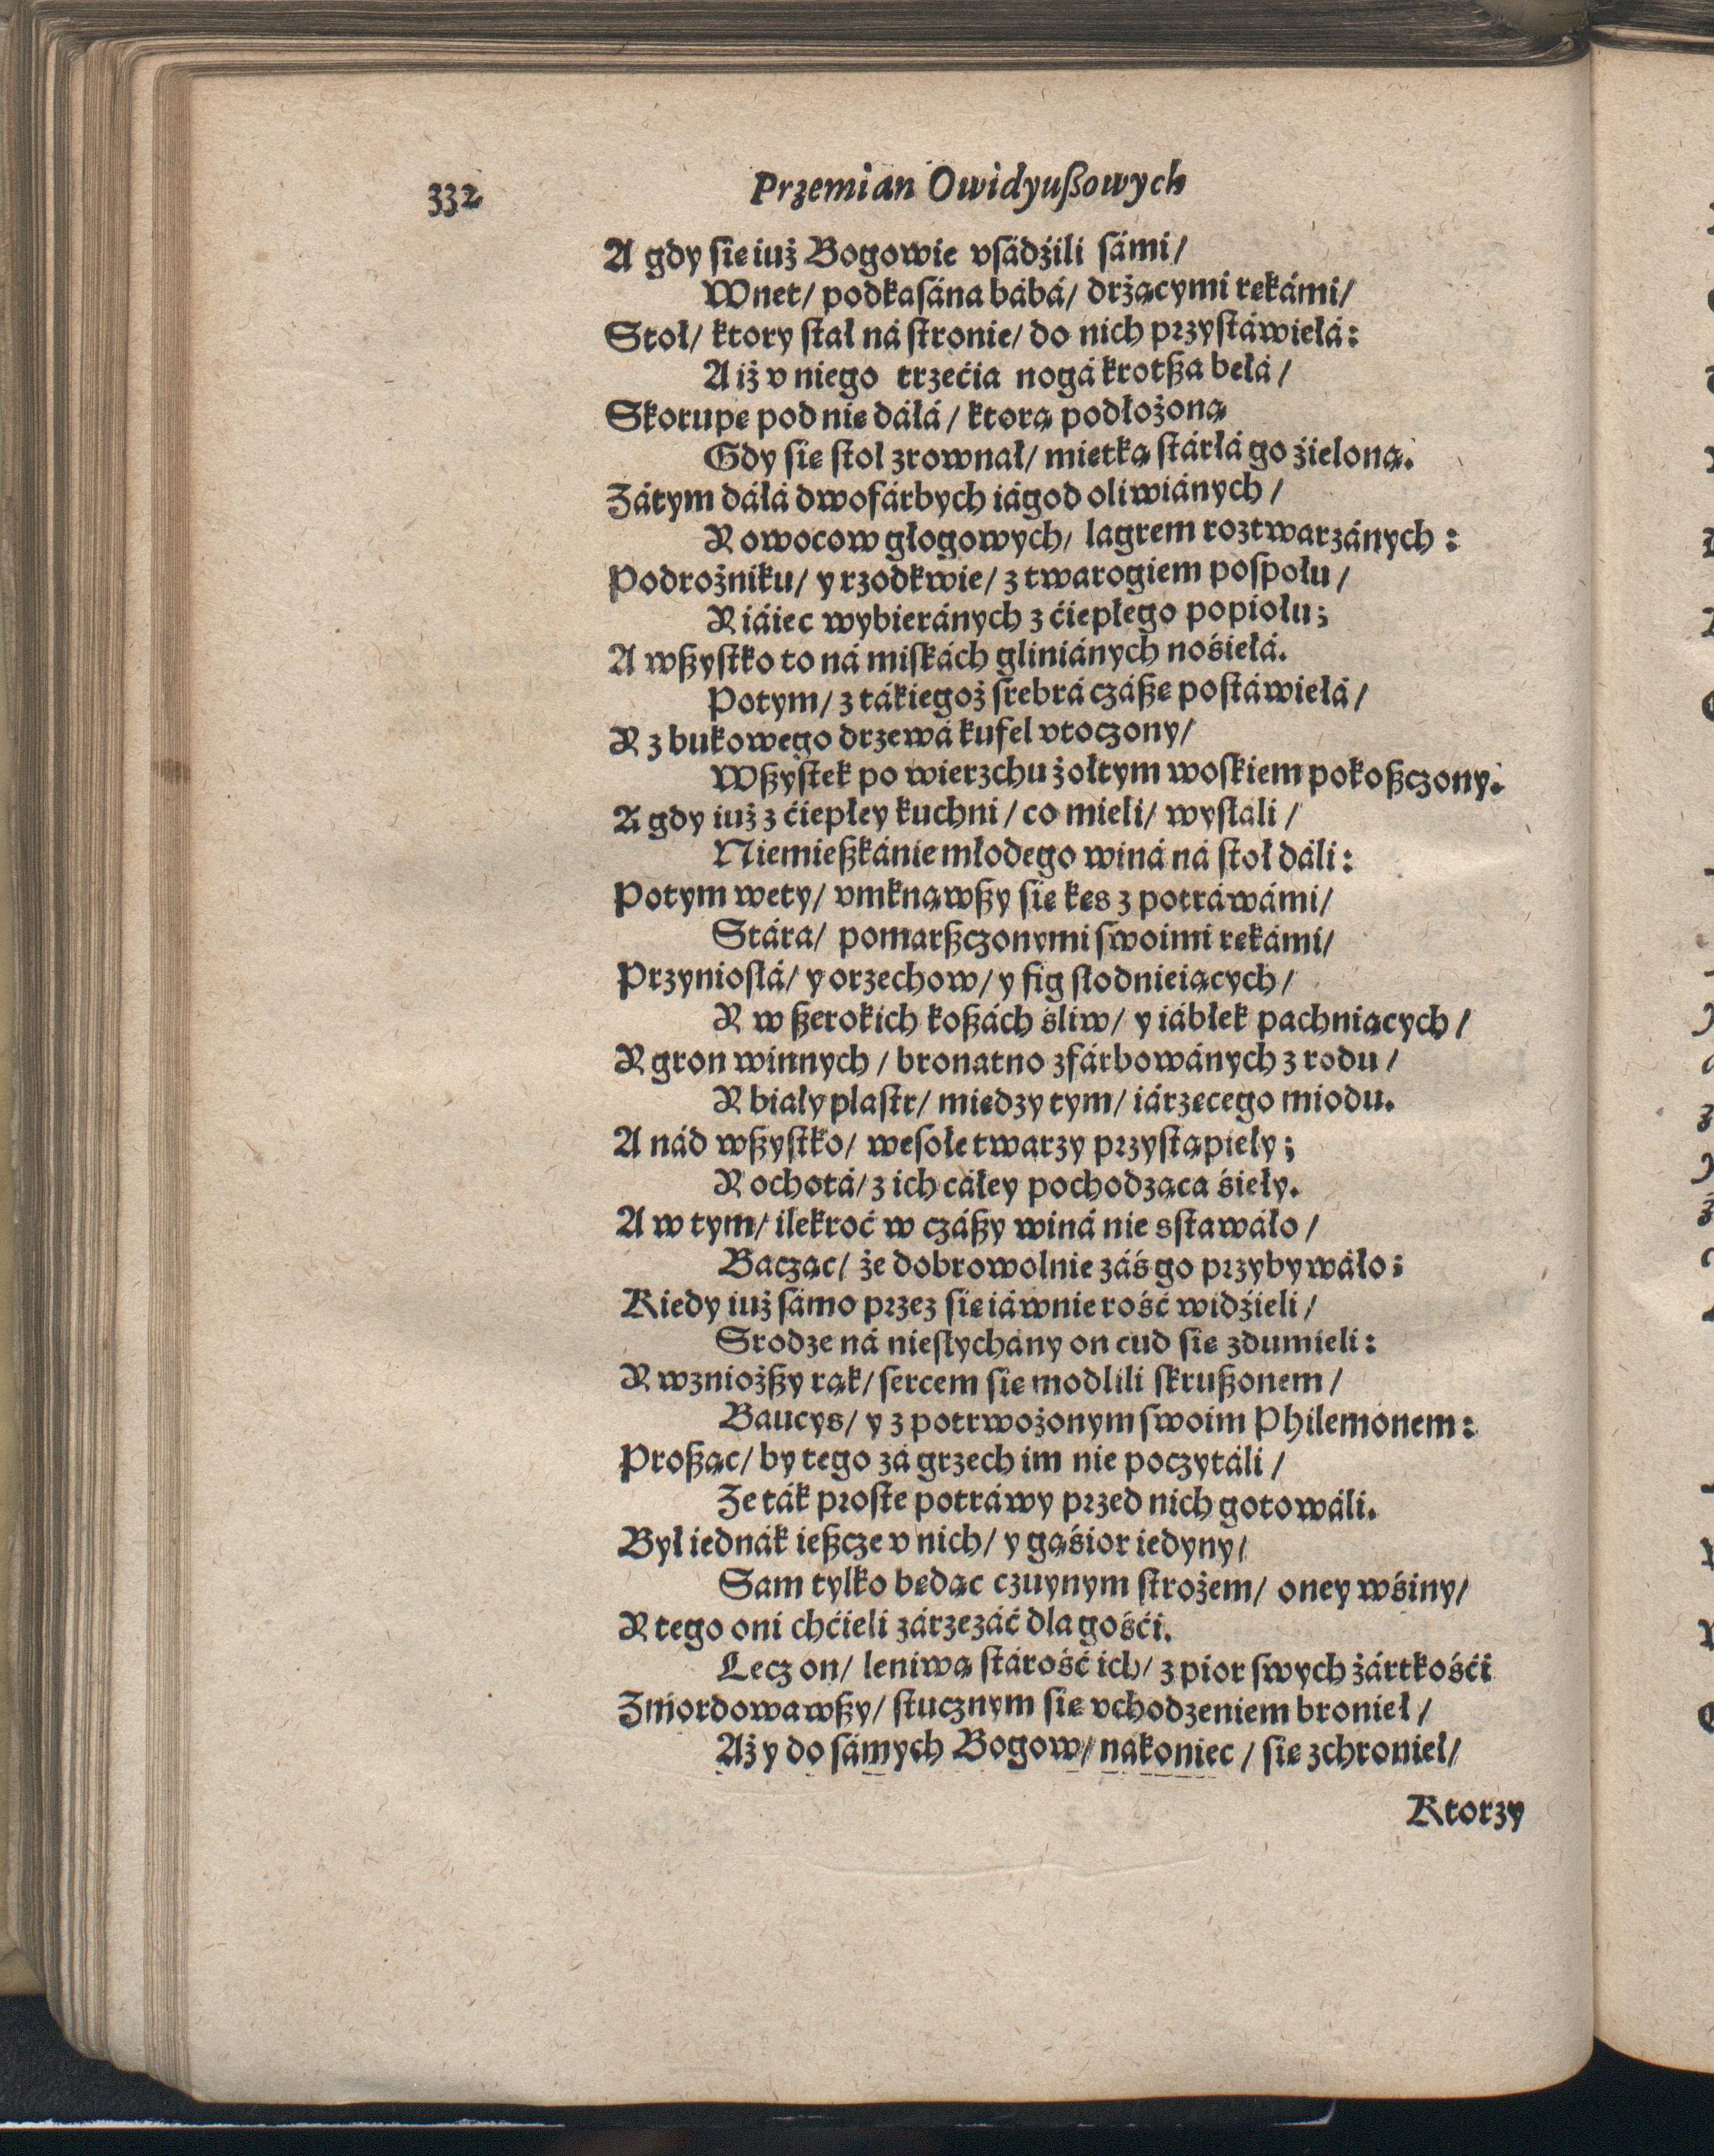 332
Przemian Owidyußowych
A gdy ſię iuż Bogowie vſádźili ſámi/
Wnet/ podkaſána bábá/ drżącymi rękámi/
Stoł/ ktory ſtał ná ſtronie/ do nich przyſtáwiełá:
A iż v niego trzećia nogá krotßa bełá/
Skorupę pod nię dáłá/ ktorą podłożoną
Gdy ſię ſtoł zrownał/ miętką ſtárłá go źieloną.
Zátym dáłá dwofárbych iágod oliwiánych/
Y owocow głogowych/ lagrem roztwarzánych:
Podrożniku/ y rzodkwie/ z twarogiem poſpołu/
Y iáiec wybieránych z ćiepłego popiołu;
A wßyſtko to ná miſkách gliniánych nośiełá.
Potym/ z tákiegoż ſrebrá czáßę poſtáwiełá/
Y z bukowego drzewá kufel vtoczony/
Wßyſtek po wierzchu żołtym woſkiem pokoßczony.
A gdy iuż z ćiepłey kuchni/ co mieli/ wysłali/
Niemießkánie młodego winá ná ſtoł dáli:
Potym wety/ vmknąwßy ſię kęs z potráwámi/
Stára/ pomarßczonymi ſwoimi rękámi/
Przyniosłá/ y orzechow/ y fig słodnieiących/
Y w ßerokich koßách śliw/ y iábłek pachniących/
Y gron winnych/ bronatno zfárbowánych z rodu/
Y biały plaſtr/ miedzy tym/ iárzęcego miodu.
A nád wßyſtko/ weſołe twarzy przyſtąpieły;
Y ochotá/ z ich cáłey pochodząca śieły.
A w tym/ ilekroć w czáßy winá nie sſtawáło/
Bacząc/ że dobrowolnie záś go przybywáło;
Kiedy iuż ſámo przez ſię iáwnie rość widźieli/
Srodze ná niesłychány on cud ſię zdumieli:
Y wznioźßy rąk/ ſercem ſię modlili ſkrußonem/
Baucys/ y z potrwożonym ſwoim Philemonem:
Proßąc/ by tego zá grzech im nie poczytáli/
Ze ták proſte potráwy przed nich gotowáli.
Był iednák ießcze v nich/ y gąśior iedyny/
Sam tylko będąc czuynym ſtrożem/ oney wśiny/
Y tego oni chćieli zárzezáć dla gośći.
Lecz on/ leniwą ſtárość ich/ z pior ſwych żártkośći
Zmordowawßy/ ſtucznym ſię vchodzeniem bronieł/
Aż y do ſámych Bogow/ nákoniec/ ſię zchronieł/
Ktorzy